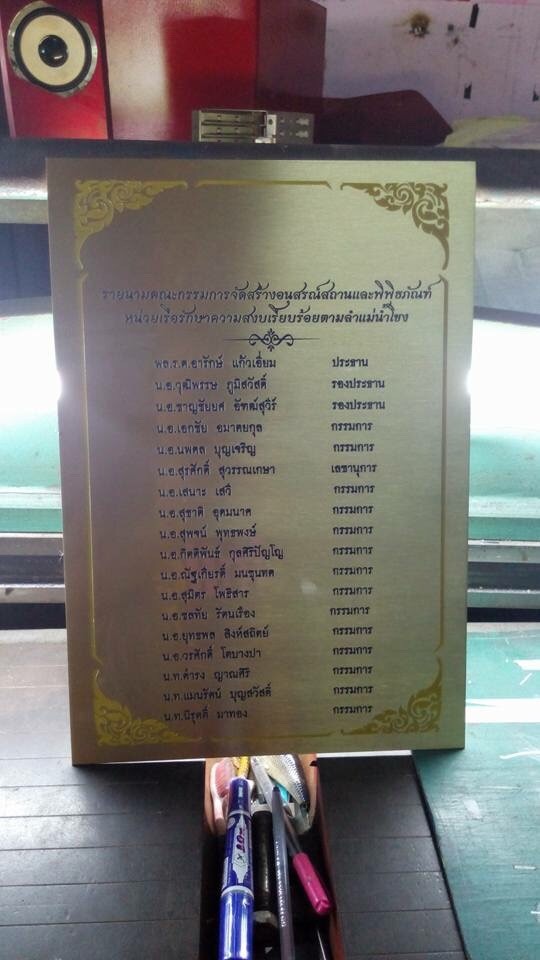 รายนามคณะกรรมการจัดสร้างอนุสรณ์สถานและพิพิธภัณฑ์
หน่วยเรือรักษาความสงบเรียบร้อยตามลำแม่น้ำโขง
พล.ร.ต.อารักษ์ แก้วเอี่ยม ประธาน
น.อ.วุฒิพรรษ ภูมิสวัสดิ์ รองประธาน
น.อ.ชาญชัยยศ อัฑฒ์สุวีร์ รองประธาน
น.อ.เอกชัย อมาตยกุล กรรมการ
น.อ.นพดล บุญเจริญ กรรมการ
น.อ.สุรศักดิ์ สุวรรณเกษา เลขานุการ
น.อ.เสนาะ เสวี กรรมการ
น.อ.สุชาติ อุดมนาค กรรมการ
น.อ.สุพจน์ พุทธพงษ์ กรรมการ
น.อ.กิตติพันธ์ กุลศิริปัญโญ กรรมการ
น.อ.ณัฐเกียรติ์ มนขุนทด กรรมการ
น.อ.สุมิตร โพธิสาร กรรมการ
น.อ.ชลทัย รัตนเรือง กรรมการ
น.อ.ยุทธพล สิงห์สถิตย์ กรรมการ
น.อ.วรศักดิ์ โตบางปา กรรมการ
น.ท.ดำรง ญาณศิริ กรรมการ
น.ท.แมนรัตน์ บุญสวัสดิ์ กรรมการ
น.ท.นิรุตติ์ มาทอง กรรมการ